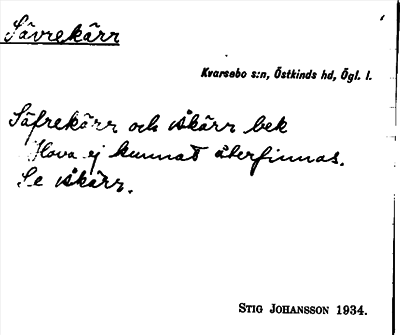 Sävrekärr
Kvarsebo s:n, Östkinds hd, Ögl. l.
Säfrekärr och iskärr bek
Hava ej kunnat återfinnas.
Se iskärr.
STIG JOHANSSON 1934.